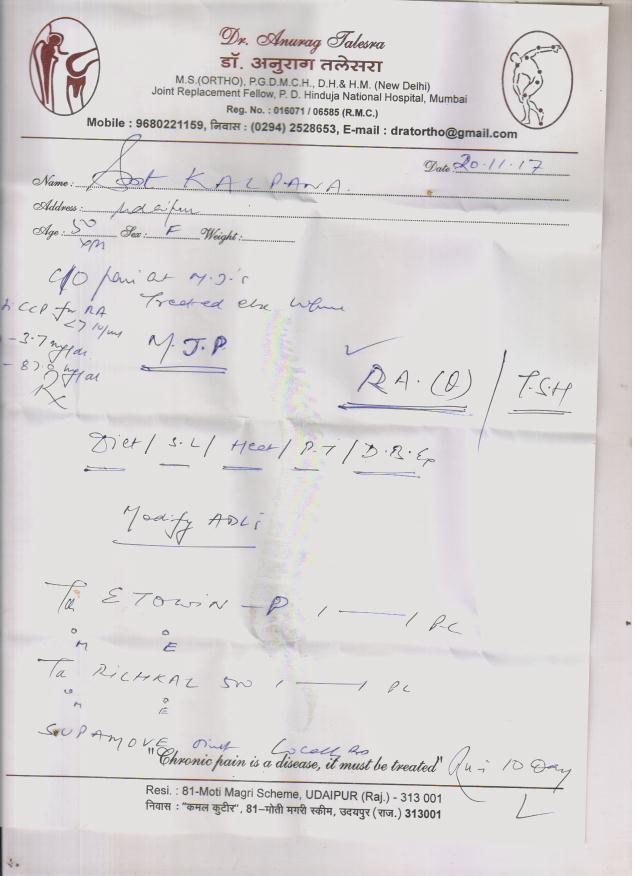 Dr. Anurag Talesra
डॉ. अनुराग तलेसरा
M.S.(ORTHO), P.G.D.M.C.H., D.H.& H.M. (New Delhi)
Joint Replacement Fellow, P. D. Hinduja National Hospital, Mumbai
Reg. No. : 016071 / 06585 (R.M.C.)
Mobile : 9680221159, निवास : (0294) 2528653, E-mail : dratortho@gmail.com
Date : 20.11.17
Name : KALPANA.
Address : Udaipur
Age : 50 Sex : F Weight :
C/O pain at M.J.'s
CCP for RA Treated else where
M.J.P
RA. / T.S.H
Rx
Diet / S.L / Heat / P.T / D.B. Ex
Modify ADLs
Ta ETOWIN - P 1 — 1 PC
M E
Ta RICHKAL 500 1 — 1 PC
M E
SUPAMOVE oint Locally
"Chronic pain is a disease, it must be treated"
10 Day
Resi. : 81-Moti Magri Scheme, UDAIPUR (Raj.) - 313 001
निवास : "कमल कुटीर", 81–मोती मगरी स्कीम, उदयपुर (राज.) 313001